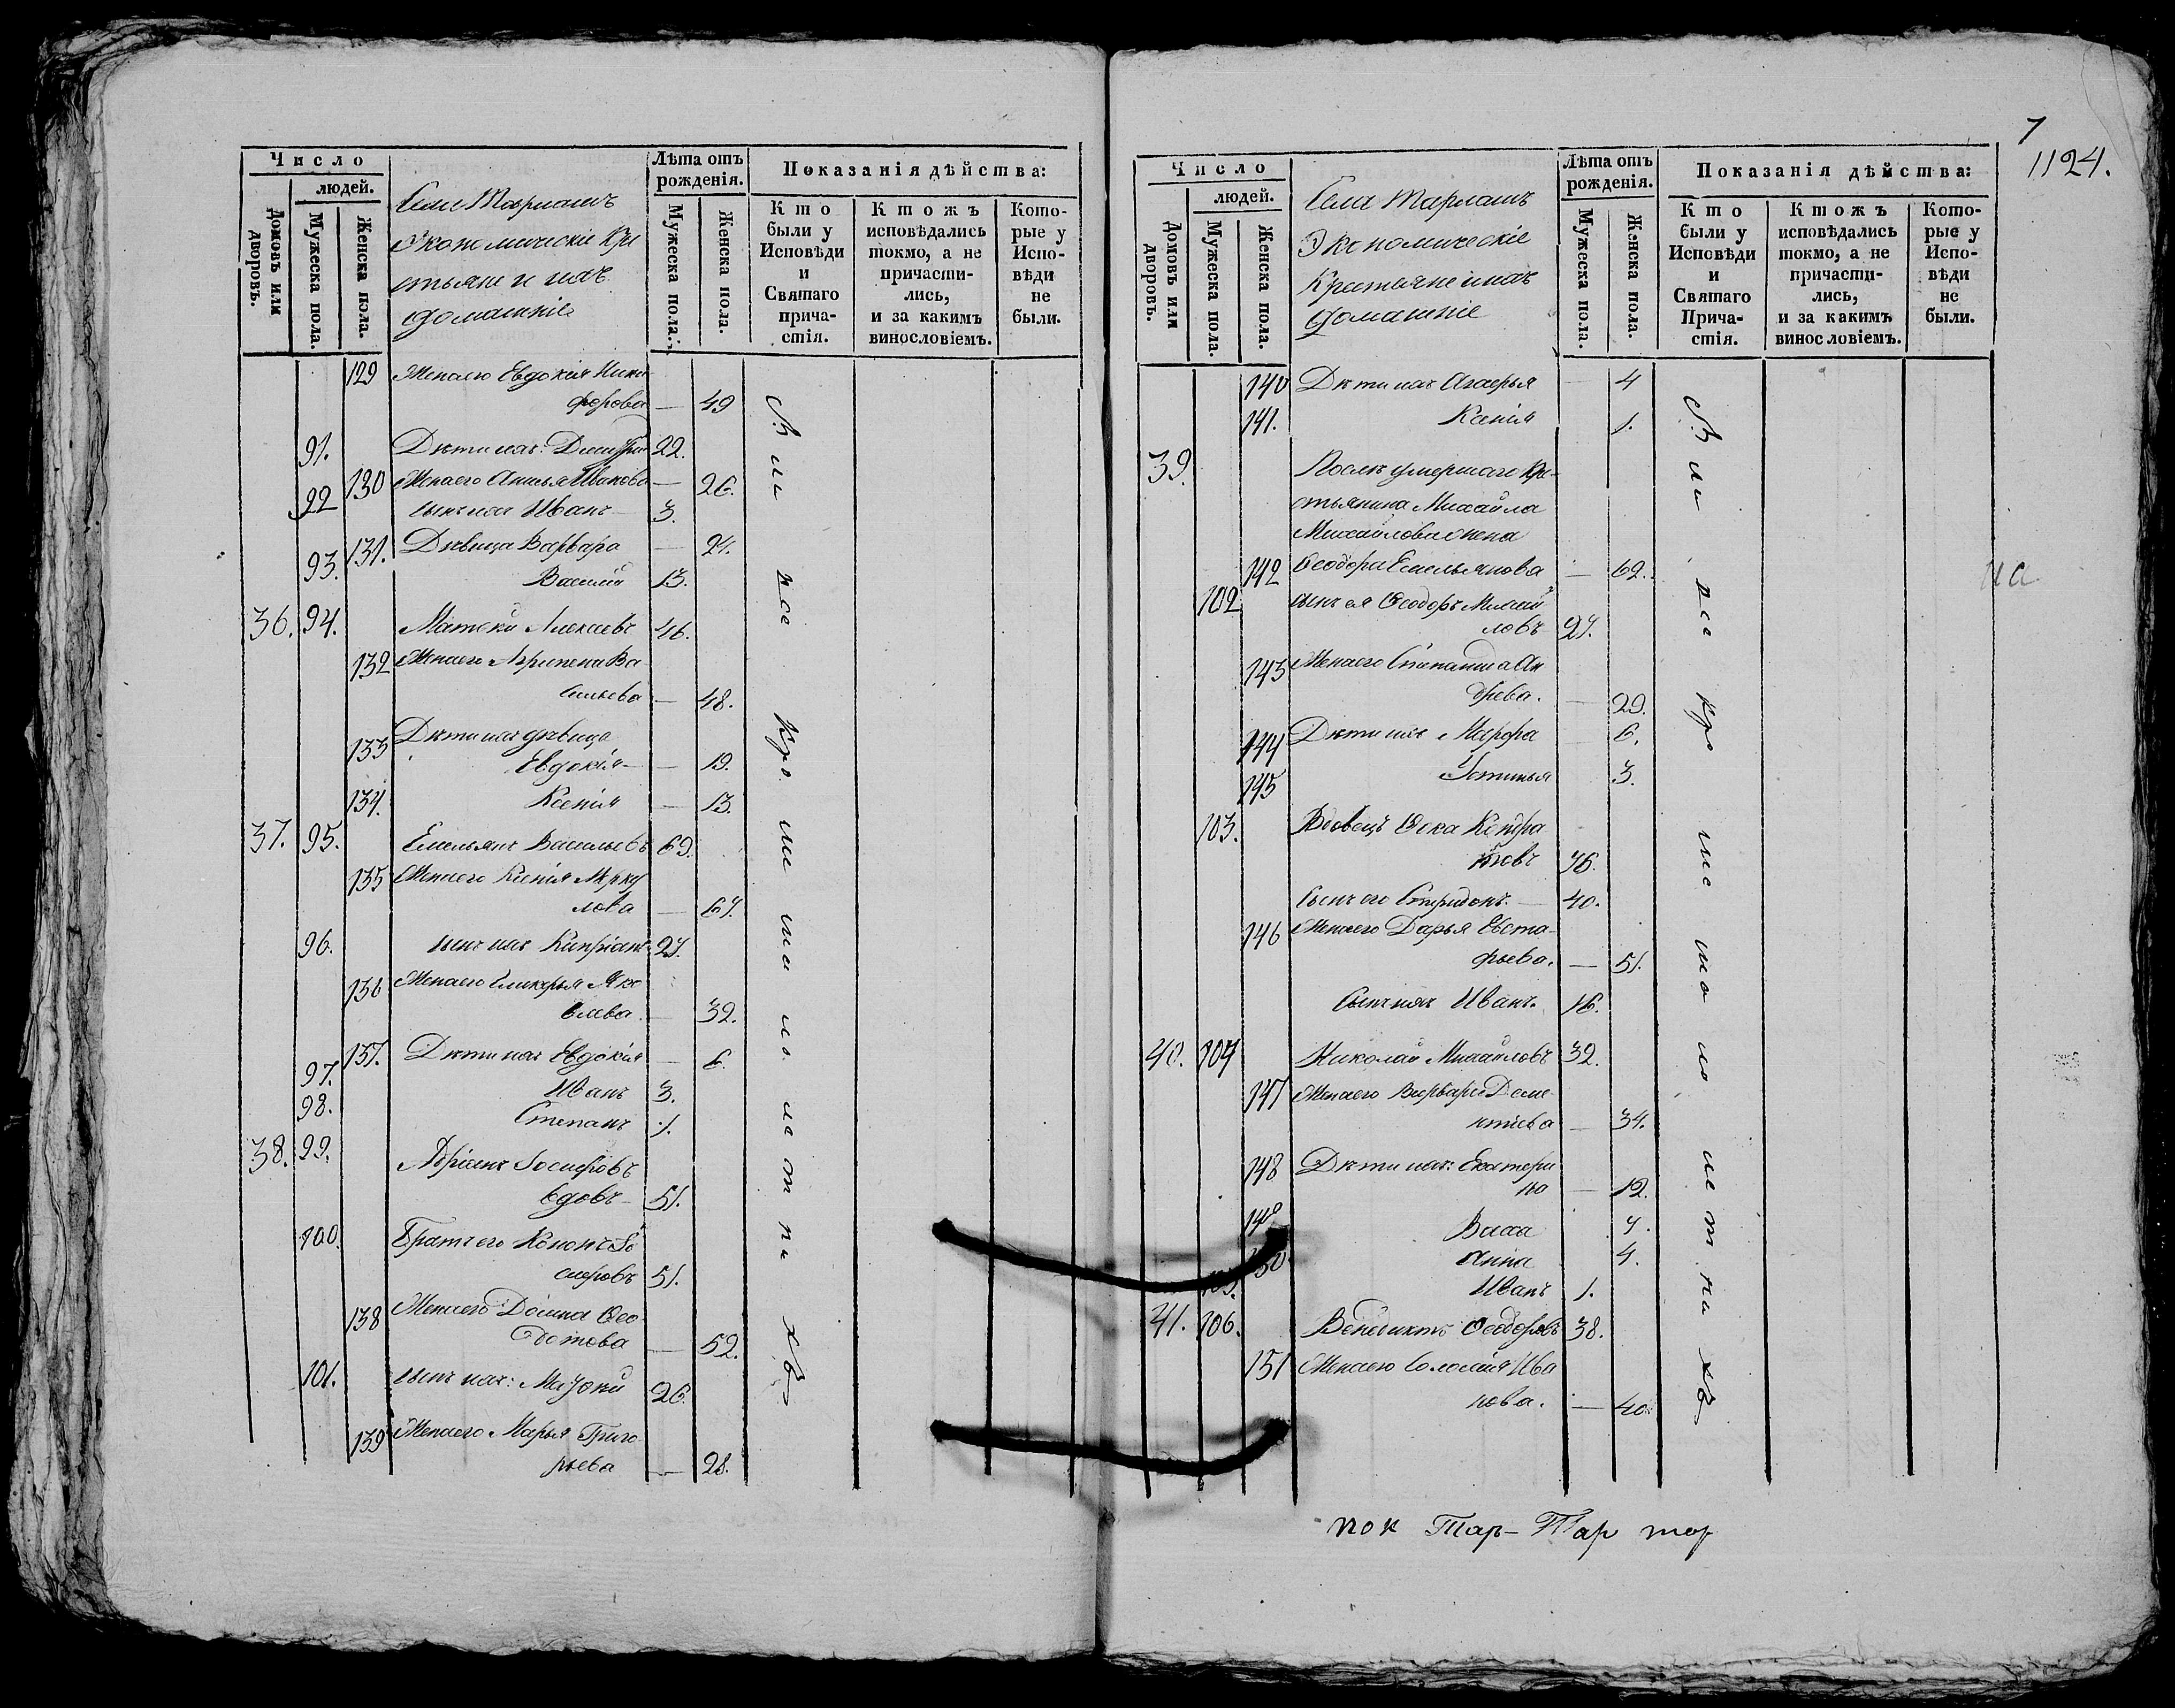 Число
людей.
Домовъ или дворовъ.
Мужеска пола.
Женска пола.
Экономическіе Кре
стьяне и ихъ
домашніе
Лѣта отъ рожденія.
Мужеска пола.
Женска пола.
Показанія дѣйства:
Кто были у Исповѣди и Святаго причастія.
Ктожъ исповѣдались токмо, а не причастились, и за какимъ винословіемъ.
Которые у Исповѣди не были.
129 Жена его Евдокія Ники
форова — 49
91. Дѣти ихъ: Димитрій 22.
130 Жена его Анисья Иванова — 26.
92 сынъ ихъ Иванъ 3.
131. Дѣвица Варвара — 21.
93. Василій 13.
36. 94. Матвѣй Алексѣевъ 46.
132 Жена его Агрипена Ва
сильева — 48.
133 Дѣти ихъ дѣвица
Евдокія — 19.
134. Ксенія — 13.
37. 95. Емельянъ Васильевъ 69.
135 Жена его Ксенія Мерку
лова — 67.
96. сынъ ихъ Кипріанъ 27.
136 Жена его Гликерья Яко
влева — 32.
137. Дѣти ихъ Евдокія — 6.
97. Иванъ 3.
98. Степанъ 1.
38. 99. Адріанъ Іосифовъ
вдовъ 51.
100. Братъ его Кононъ Іо
сифовъ 51.
138 Жена его Домна Ѳео
дотова — 52.
101. сынъ ихъ: 26.
139 Жена его Марья Григо
рьева — 28.
7
1124.
Число
людей.
Домовъ или дворовъ.
Мужеска пола.
Женска пола.
Экономическіе
Крестьяне и ихъ
домашніе
Лѣта отъ рожденія.
Мужеска пола.
Женска пола.
Показанія дѣйства:
Кто были у Исповѣди и Святаго Причастія.
Ктожъ исповѣдались токмо, а не причастились, и за какимъ винословіемъ.
Которые у Исповѣди не были.
140 Дѣти ихъ Агафья — 4
141. Ксенія 1.
39. Послѣ умершаго Кре
стьянина Михайла
Михайлова жена
142 Ѳеодора Емельянова — 62.
102 сынъ ея Ѳеодоръ Михай
ловъ 27.
143 Жена его Степанида Ан
дреева. — 29.
144 Дѣти ихъ Марфа — 6.
145 Устинья 3.
103. Вдовецъ Ѳока Кондра
товъ 76.
сынъ его Спиридонъ. — 40.
146 Жена его Дарья Евста
фьева. — 51.
Сынъ ихъ Иванъ. 16.
40. 104 Николай Михайловъ 32.
147 Жена его Варвара Деме
нтіева — 34.
148 Дѣти ихъ: Екатери
на — 12.
149 Васса 7.
150. Анна 4.
105. Иванъ 1.
41. 106. Венедиктъ Ѳеодоровъ 38.
151 Жена его Соломія Ива
нова. — 40.